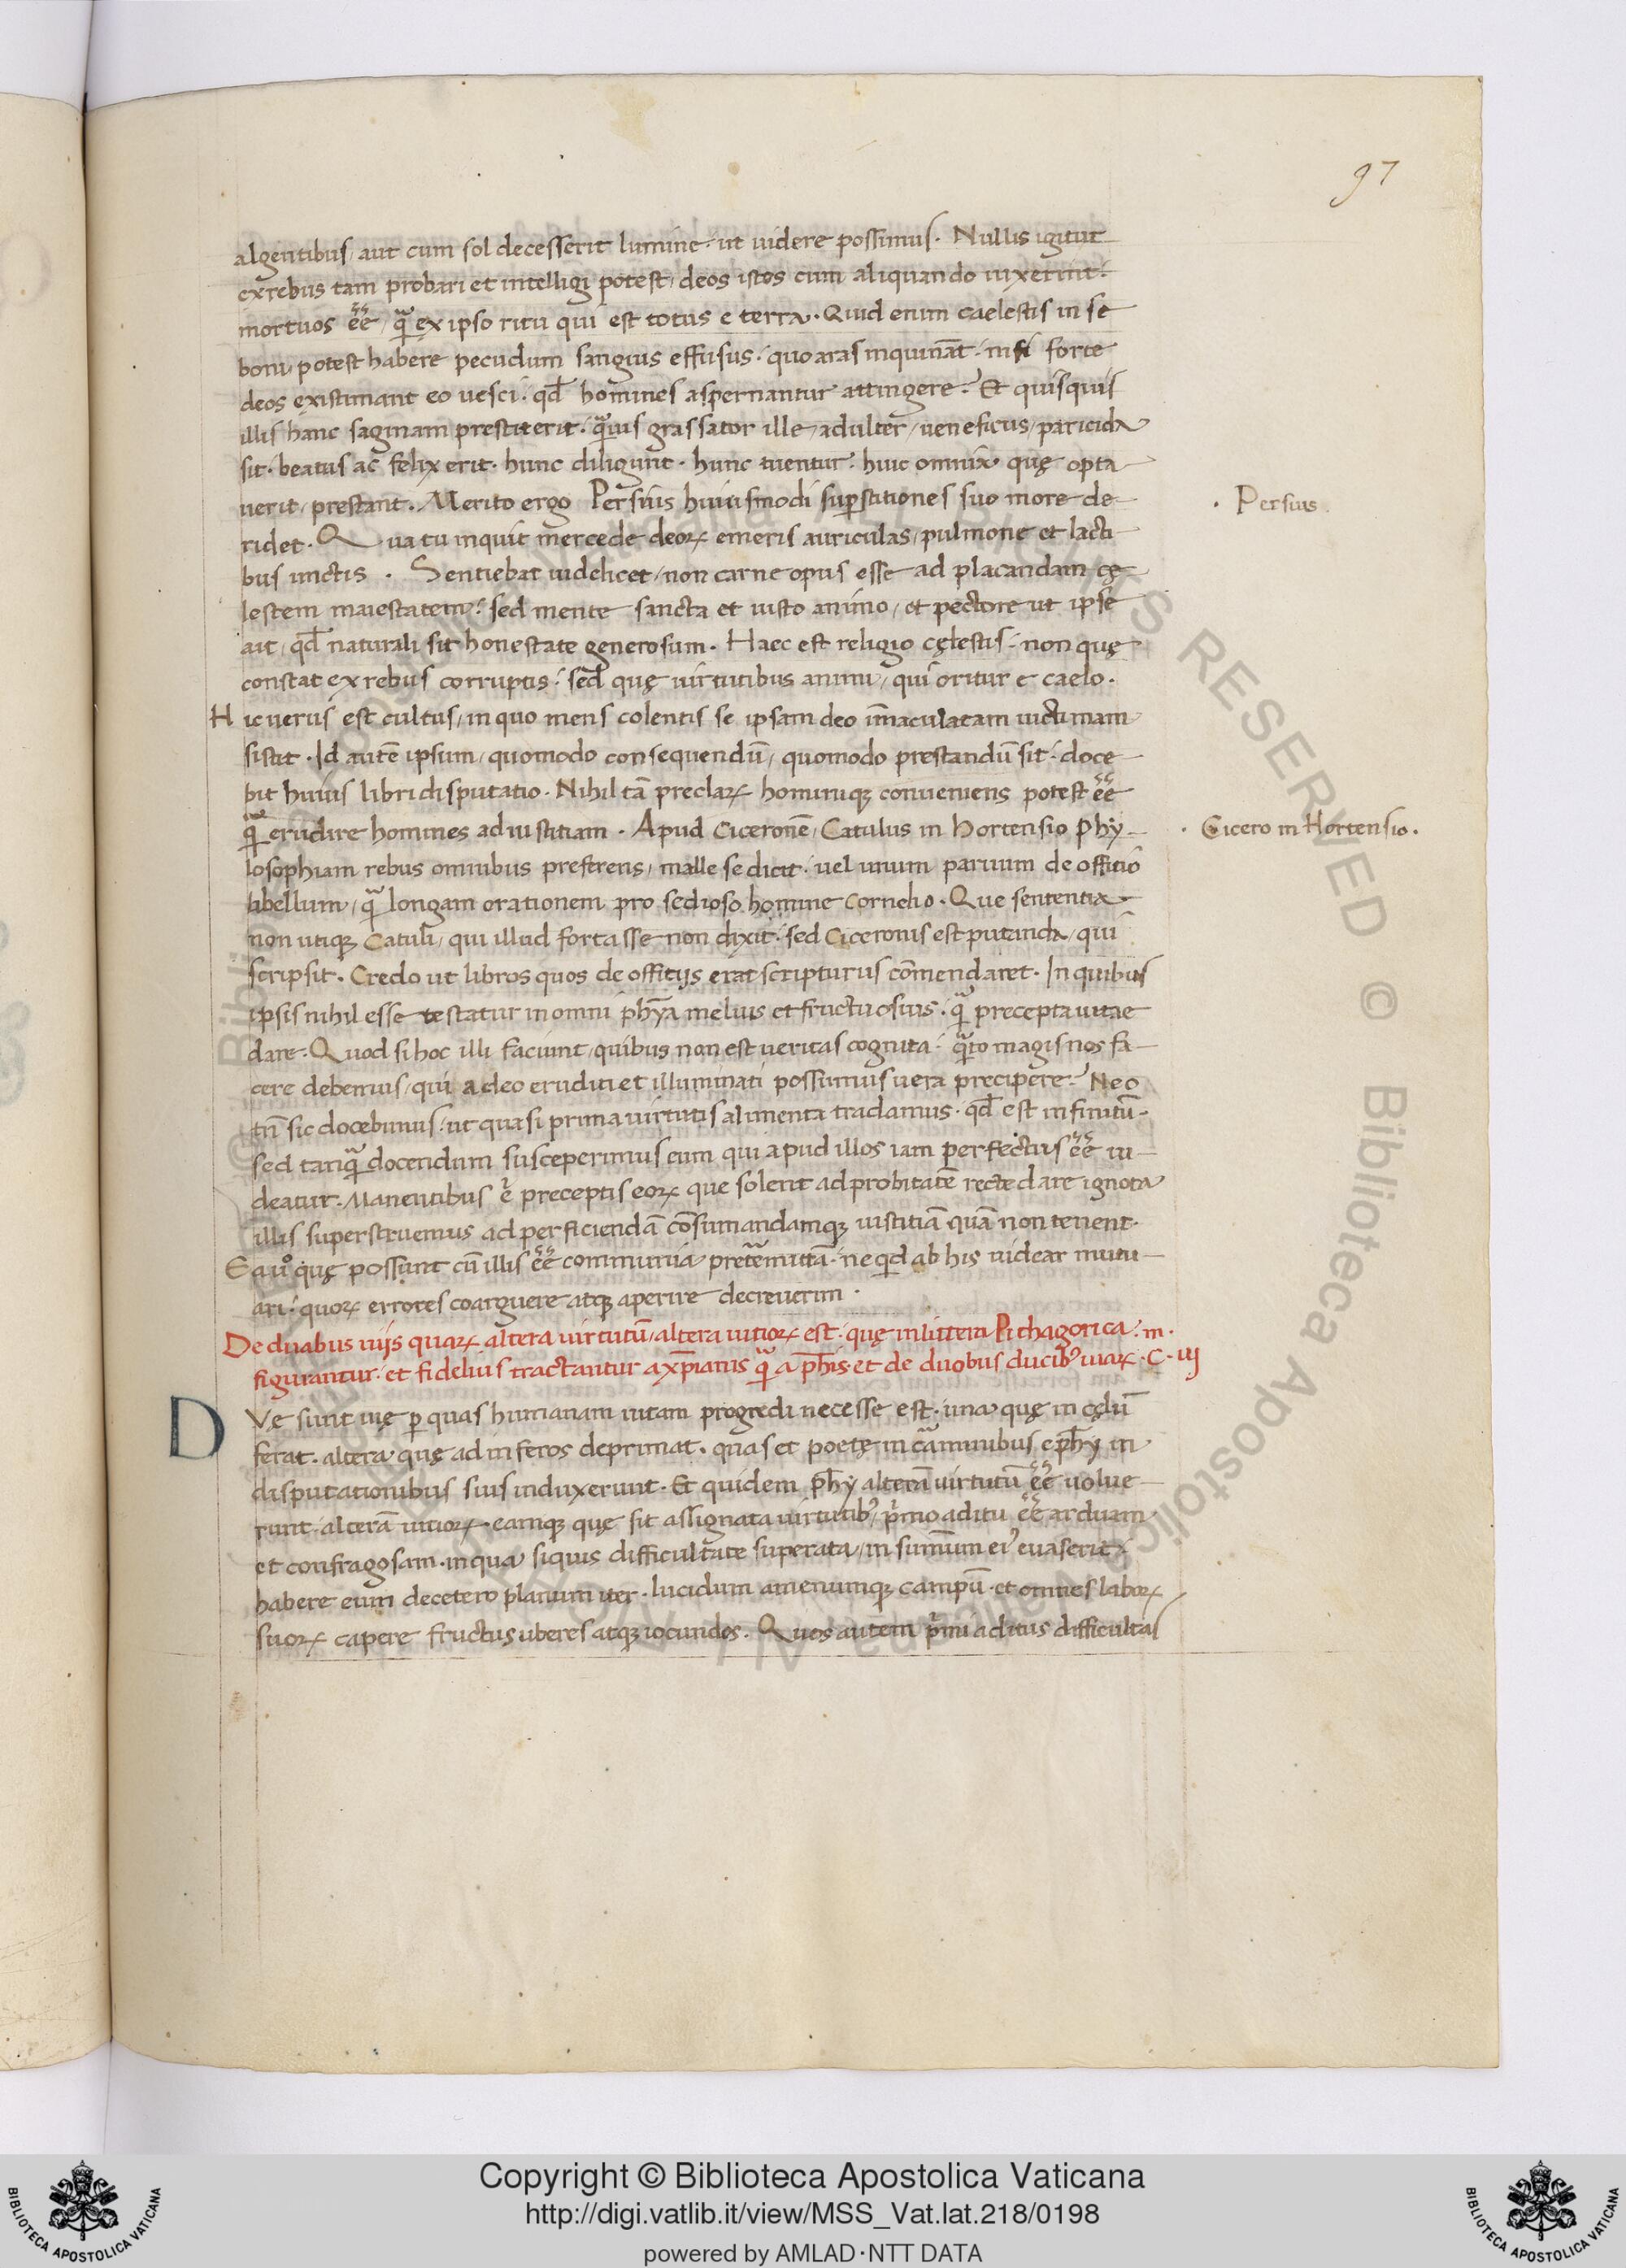 97
algentibus, aut cum sol decesserit lumine. ut uidere possimus. Nullis igitur
ex rebus tam probari et intelligi potest, deos istos cum aliquando uixerint.
mortuos eẽ, qͣ ex ipso ritu qui est totus e terra. Quid enim caelestis in se
boni potest habere pecudum sangius effusus. quo aras inquinãt. nisi forte
deos existimant eo uesci. qd̃ homines aspernantur attingere. Et quisquis
illis hanc saginam prestiterit. qͣuis grassator ille, adulter, ueneficus, paricida
sit. beatus ac felix erit. hunc diligunt. hunc tuentur. huic omnia quę opta
uerit, prestant. Merito ergo Persius huiusmodi suꝑstitiones suo more de-
ridet. Qua tu inquit mercede deoꝝ emeris auriculas, pulmone et lacti
bus unctis. Sentiebat uidelicet, non carne opus esse ad placandam cę-
lestem maiestatem. sed mente sancta et iusto animo, et pectore ut ipse
ait, qd̃ naturali sit honestate generosum. Haec est religio cęlestis. non quę
constat ex rebus corruptis. sed quę uirtutibus animi, qui oritur e caelo.
Hic uerus est cultus, in quo mens colentis se ipsam deo im̃aculatam uictimam
sistit. Id autẽ ipsum, quomodo consequendũ, quomodo prestandũ sit. doce
bit huius libri disputatio. Nihil tã preclaꝝ hominiqꝫ conueniens potest eẽ
qͣ erudire homines ad iustitiam. Apud Ciceronẽ, Catulus in Hortensio phy-
losophiam rebus omnibus preferens, malle se dicit. uel unum paruum de offitio
libellum, qͣ longam orationem pro sedioso homine Cornelio. Que sententia
non utiqꝫ Catuli, qui illud fortasse non dixit. sed Ciceronis est putanda, qui
scripsit. Credo ut libros quos de offitijs erat scripturus com̃endaret. In quibus
ipsis nihil esse testatur in omni phỹa melius et fructuosius. qͣ precepta uitae
dare. Quod si hoc illi faciunt, quibus non est ueritas cognita. qͣto magis nos fa-
cere debemus, qui a deo eruditi et illuminati possumus uera precipere. Nec
tñ sic docebimus, ut quasi prima uirtutis alimenta tradamus. qd̃ est infinitũ.
sed tanqͣ docendum susceperimus eum qui apud illos iam perfectus eẽ ui-
deatur. Manentibus .n. preceptis eoꝝ que solent ad probitatẽ recte dare ignota
illis superstruemus ad perficiendã con̄sumandamqꝫ iustitiã quã non tenent.
Ea uͦ quę possunt cũ illis eẽ communia pretermittã. ne qͥd ab his uidear mutu-
ari. quoꝝ errores coarguere atqꝫ aperire decreuerim.
De duabus uijs quaꝝ altera uirtutũ, altera uitioꝝ est. quę in littera Pithagorica. in.
figurantur. et fidelius tractantur a xp̃ianis qͣ a ph̃is. et de duobus ducibꝰ uiaꝝ. C. iij
DVę sunt uię ꝑ quas humanam uitam progredi necesse est. una quę in cęlũ
ferat. altera quę ad inferos deprimat. quas et poetę in carminibus, e ph̃y in
disputationibus suis induxerunt. Et quidem ph̃y alterã uirtutũ eẽ uolue-
runt. alterã uitioꝝ. eamqꝫ quę sit assignata uirtutibꝰ, pͥmo aditu eẽ arduam
et confragosam. in qua siquis difficultate superata, in sum̃um eiꝰ euaserit.
habere eum decetero planum iter. lucidum amenumqꝫ campũ. et omnes laboꝝ
suoꝝ capere fructus uberes atqꝫ iocundos. Quos autem pͥmi aditus difficultas
. Persius.
. Cicero in Hortensio.
Copyright © Biblioteca Apostolica Vaticana
http://digi.vatlib.it/view/MSS_Vat.lat.218/0198
powered by AMLAD·NTT DATA
BIBLIOTECA APOSTOLICA VATICANA
BIBLIOTECA APOSTOLICA VATICANA